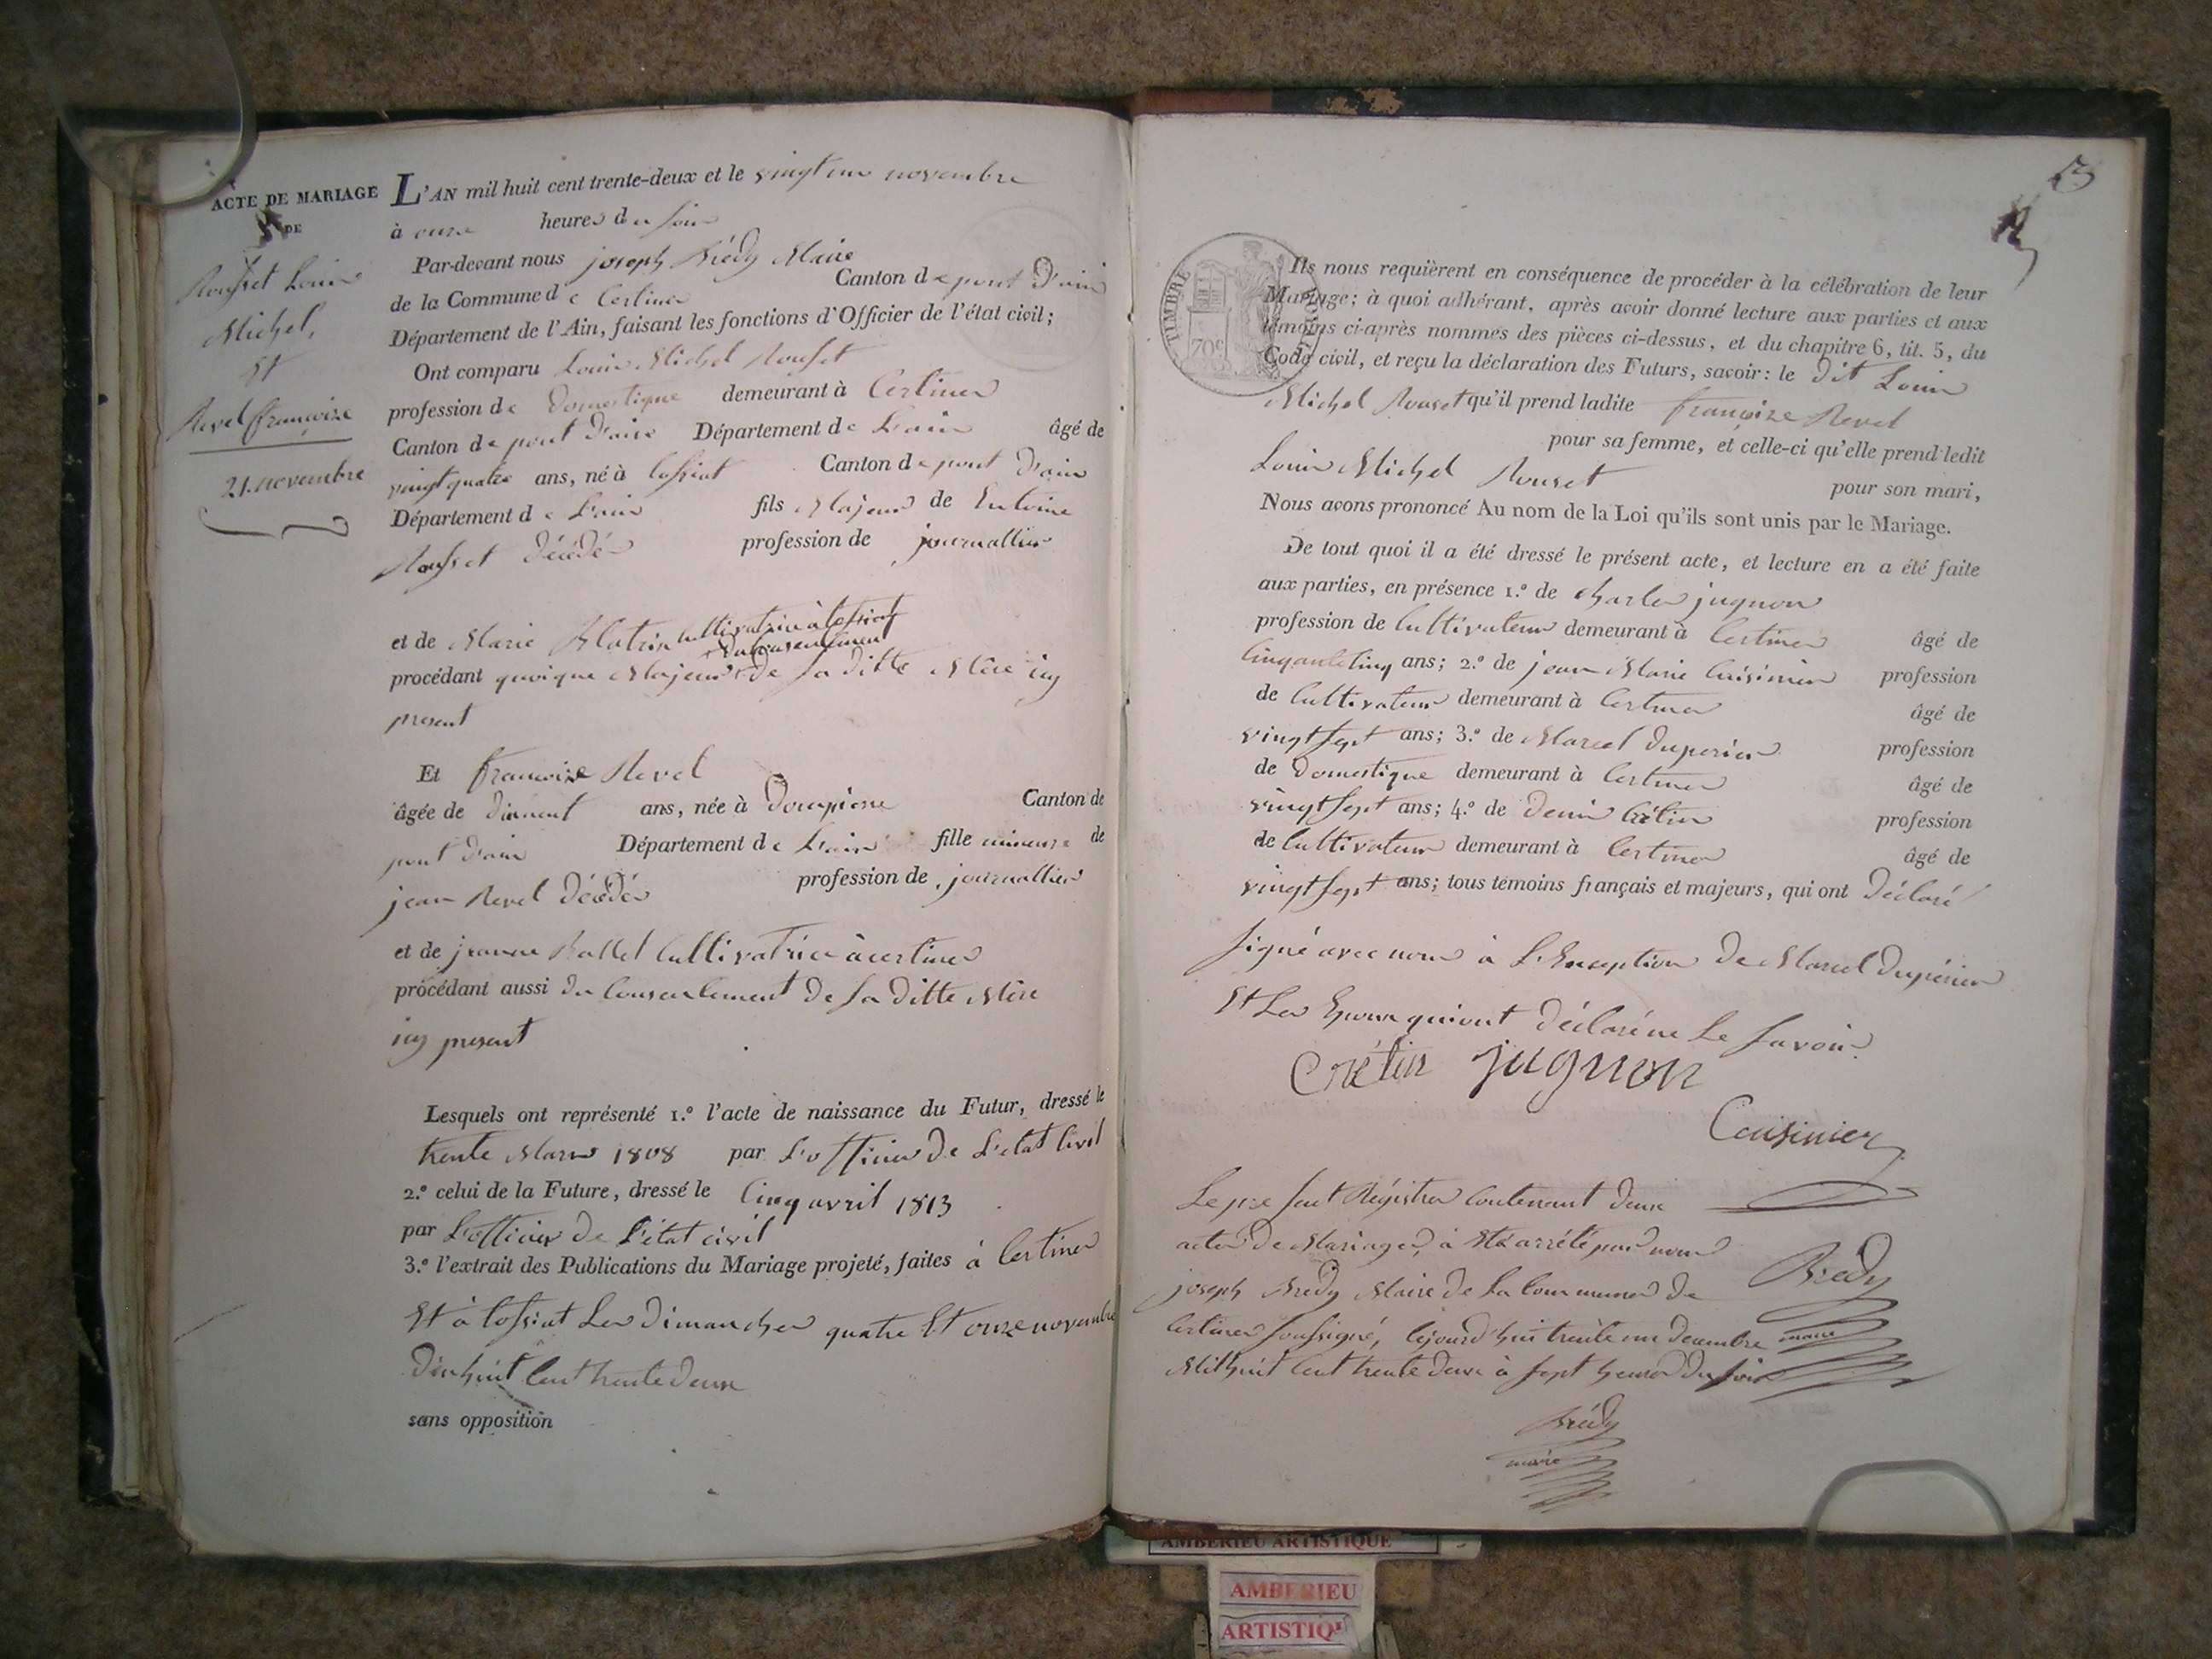 ACTE DE MARIAGE
DE
Rousset Louis
Michel,
Et
Revel françoise
21. novembre
L'AN mil huit cent trente-deux et le vingt un novembre
à onze heures du soir
Par-devant nous joseph Brédy Maire
de la Commune de Certines Canton de pont d'ain
Département de l'Ain, faisant les fonctions d'Officier de l'état civil;
Ont comparu Louis Michel Rousset
profession de Domestique demeurant à Certines
Canton de pont d'ain Département de L'ain âgé de
vingt quatre ans, né à tossiat Canton de pont d'ain
Département de L'ain fils Majeur de Entoine
Rousset décédé profession de journallier
et de Marie cultivatrice à tossiat
du consentement
procédant quoique Majeur de sa ditte Mère icy
present
Et françoise Revel
âgée de dixneuf ans, née à Dompierre Canton de
pont d'ain Département de L'ain fille mineure de
jean Revel Décédé profession de journallier
et de jeanne Ballet cultivatrice à certines
procédant aussi du consentement de sa ditte Mère
icy present
Lesquels ont représenté 1.º l'acte de naissance du Futur, dressé le
trente Mars 1808 par L'officier de L'etat civil
2.º celui de la Future, dressé le cinq avril 1813
par L'officier de L'état civil
3.º l'extrait des Publications du Mariage projeté, faites à Certines
Et à tossiat Les Dimanches quatre Et onze novembre
Dixhuit cent trente deux
sans opposition
3
TIMBRE ROYAL
70c
Ils nous requièrent en conséquence de procéder à la célébration de leur
Mariage; à quoi adhérant, après avoir donné lecture aux parties et aux
témoins ci-après nommés des pièces ci-dessus, et du chapitre 6, tit. 5, du
Code civil, et reçu la déclaration des Futurs, savoir: le dit Louis
Michel Rouset qu'il prend ladite françoise Revel
pour sa femme, et celle-ci qu'elle prend ledit
Louis Michel Rouset pour son mari,
Nous avons prononcé Au nom de la Loi qu'ils sont unis par le Mariage.
De tout quoi il a été dressé le présent acte, et lecture en a été faite
aux parties, en présence 1.º de Charles jugnon
profession de Cultivateur demeurant à Certines âgé de
Cinquante Cinq ans; 2.º de jean Marie Cuisinier profession
de Cultivateur demeurant à Certines âgé de
vingt sept ans; 3.º de Marcel Duperier profession
de Domestique demeurant à Certines âgé de
vingt sept ans; 4.º de Denis Crétin profession
de Cultivateur demeurant à Certines âgé de
vingt sept ans; tous témoins français et majeurs, qui ont Déclaré
signé avec nous à L'Exception De Marcel Dupérier
Et Les Epoux qui ont déclaré ne Le savoir.
Crétin jugnon
Cuisinier
Le present Régistre Contenant deux
actes de Mariages, a Eté arrêté par nous
joseph Brédy Maire de La Commune de
Certines soussigné, cejourd'hui trente un decembre
Mil huit cent trente deux à sept heures du soir
Bredy
maire
Brédy
maire
AMBERIEU ARTISTIQUE
AMBERIEU
ARTISTIQ